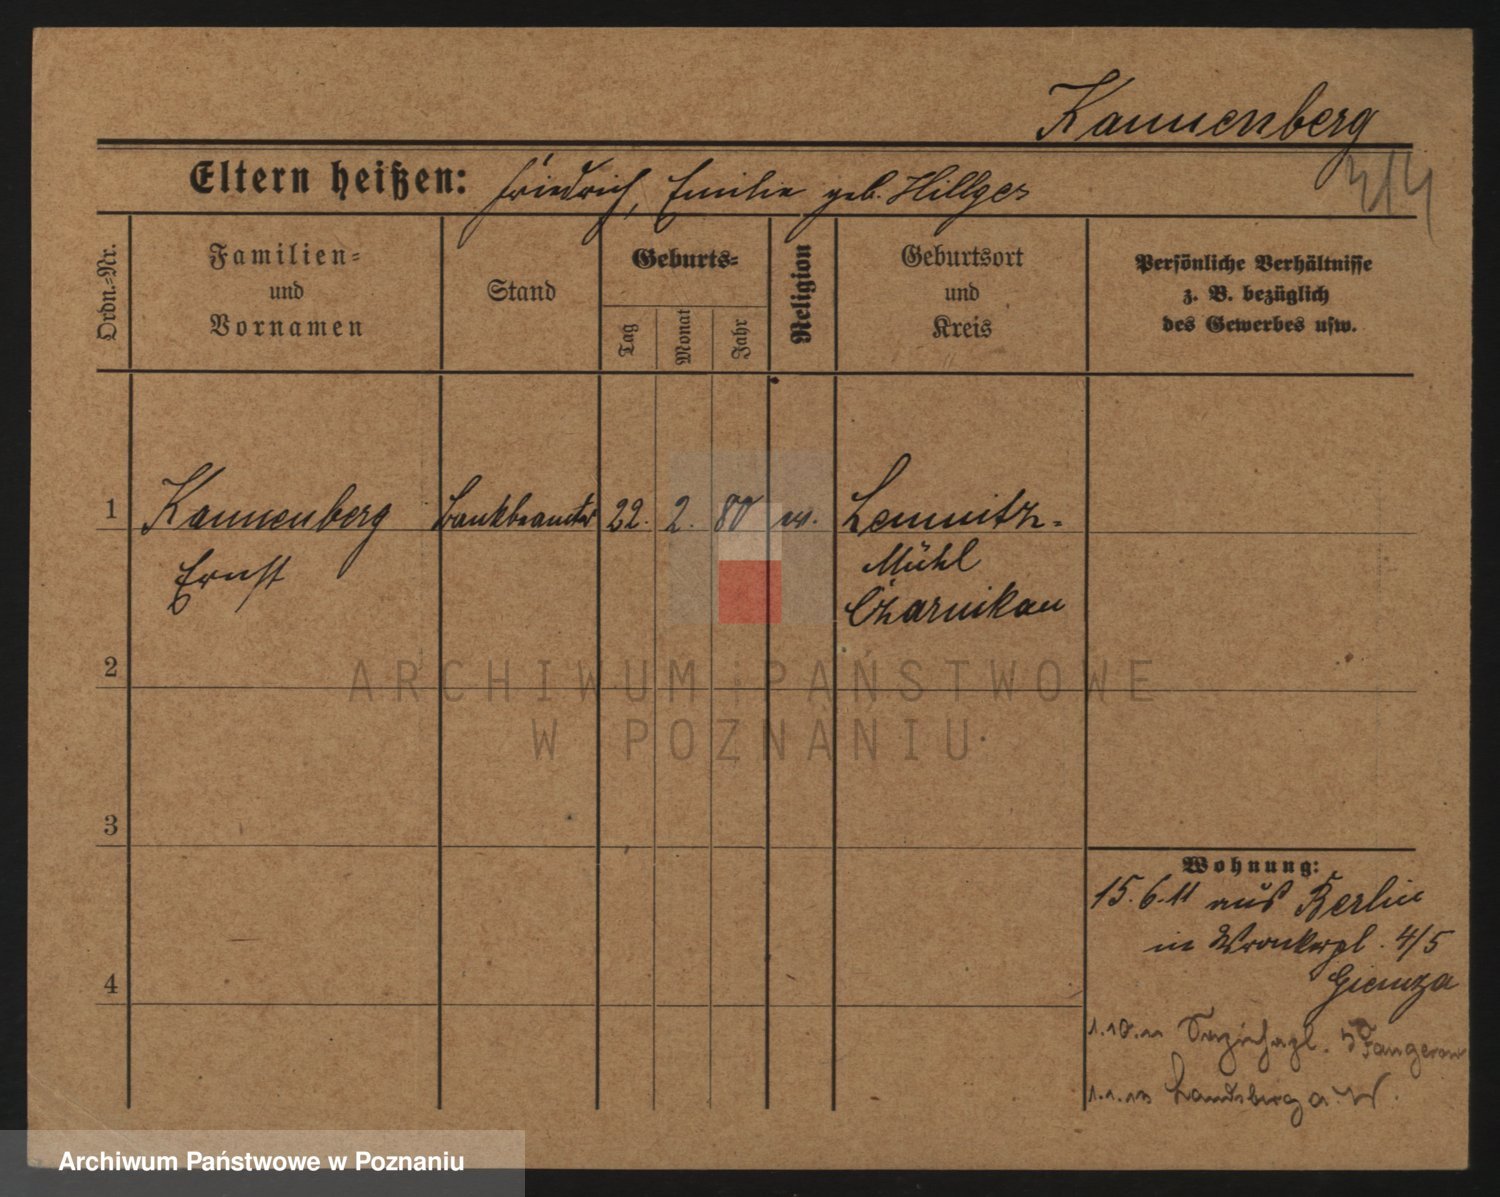 Kannenberg
314
Eltern heißen: Friedrich, Emilie geb. Hillges
Ordn.-Nr.
Familien-
und
Vornamen
Stand
Geburts-
Tag
Monat
Jahr
Religion
Geburtsort
und
Kreis
Persönliche Verhältnisse
z. B. bezüglich
des Gewerbes usw.
1 Kannenberg Bankbeamter 22. 2. 80 ev. Lemnitz-
Ernst Mühl
Czarnikau
2
ARCHIWUM PAŃSTWOWE
W POZNANIU
3
Wohnung:
15.6.11 aus Berlin
in Wronkerpl. 4/5
4
1.10.11
1.1.13 Landsberg a. W.
Archiwum Państwowe w Poznaniu